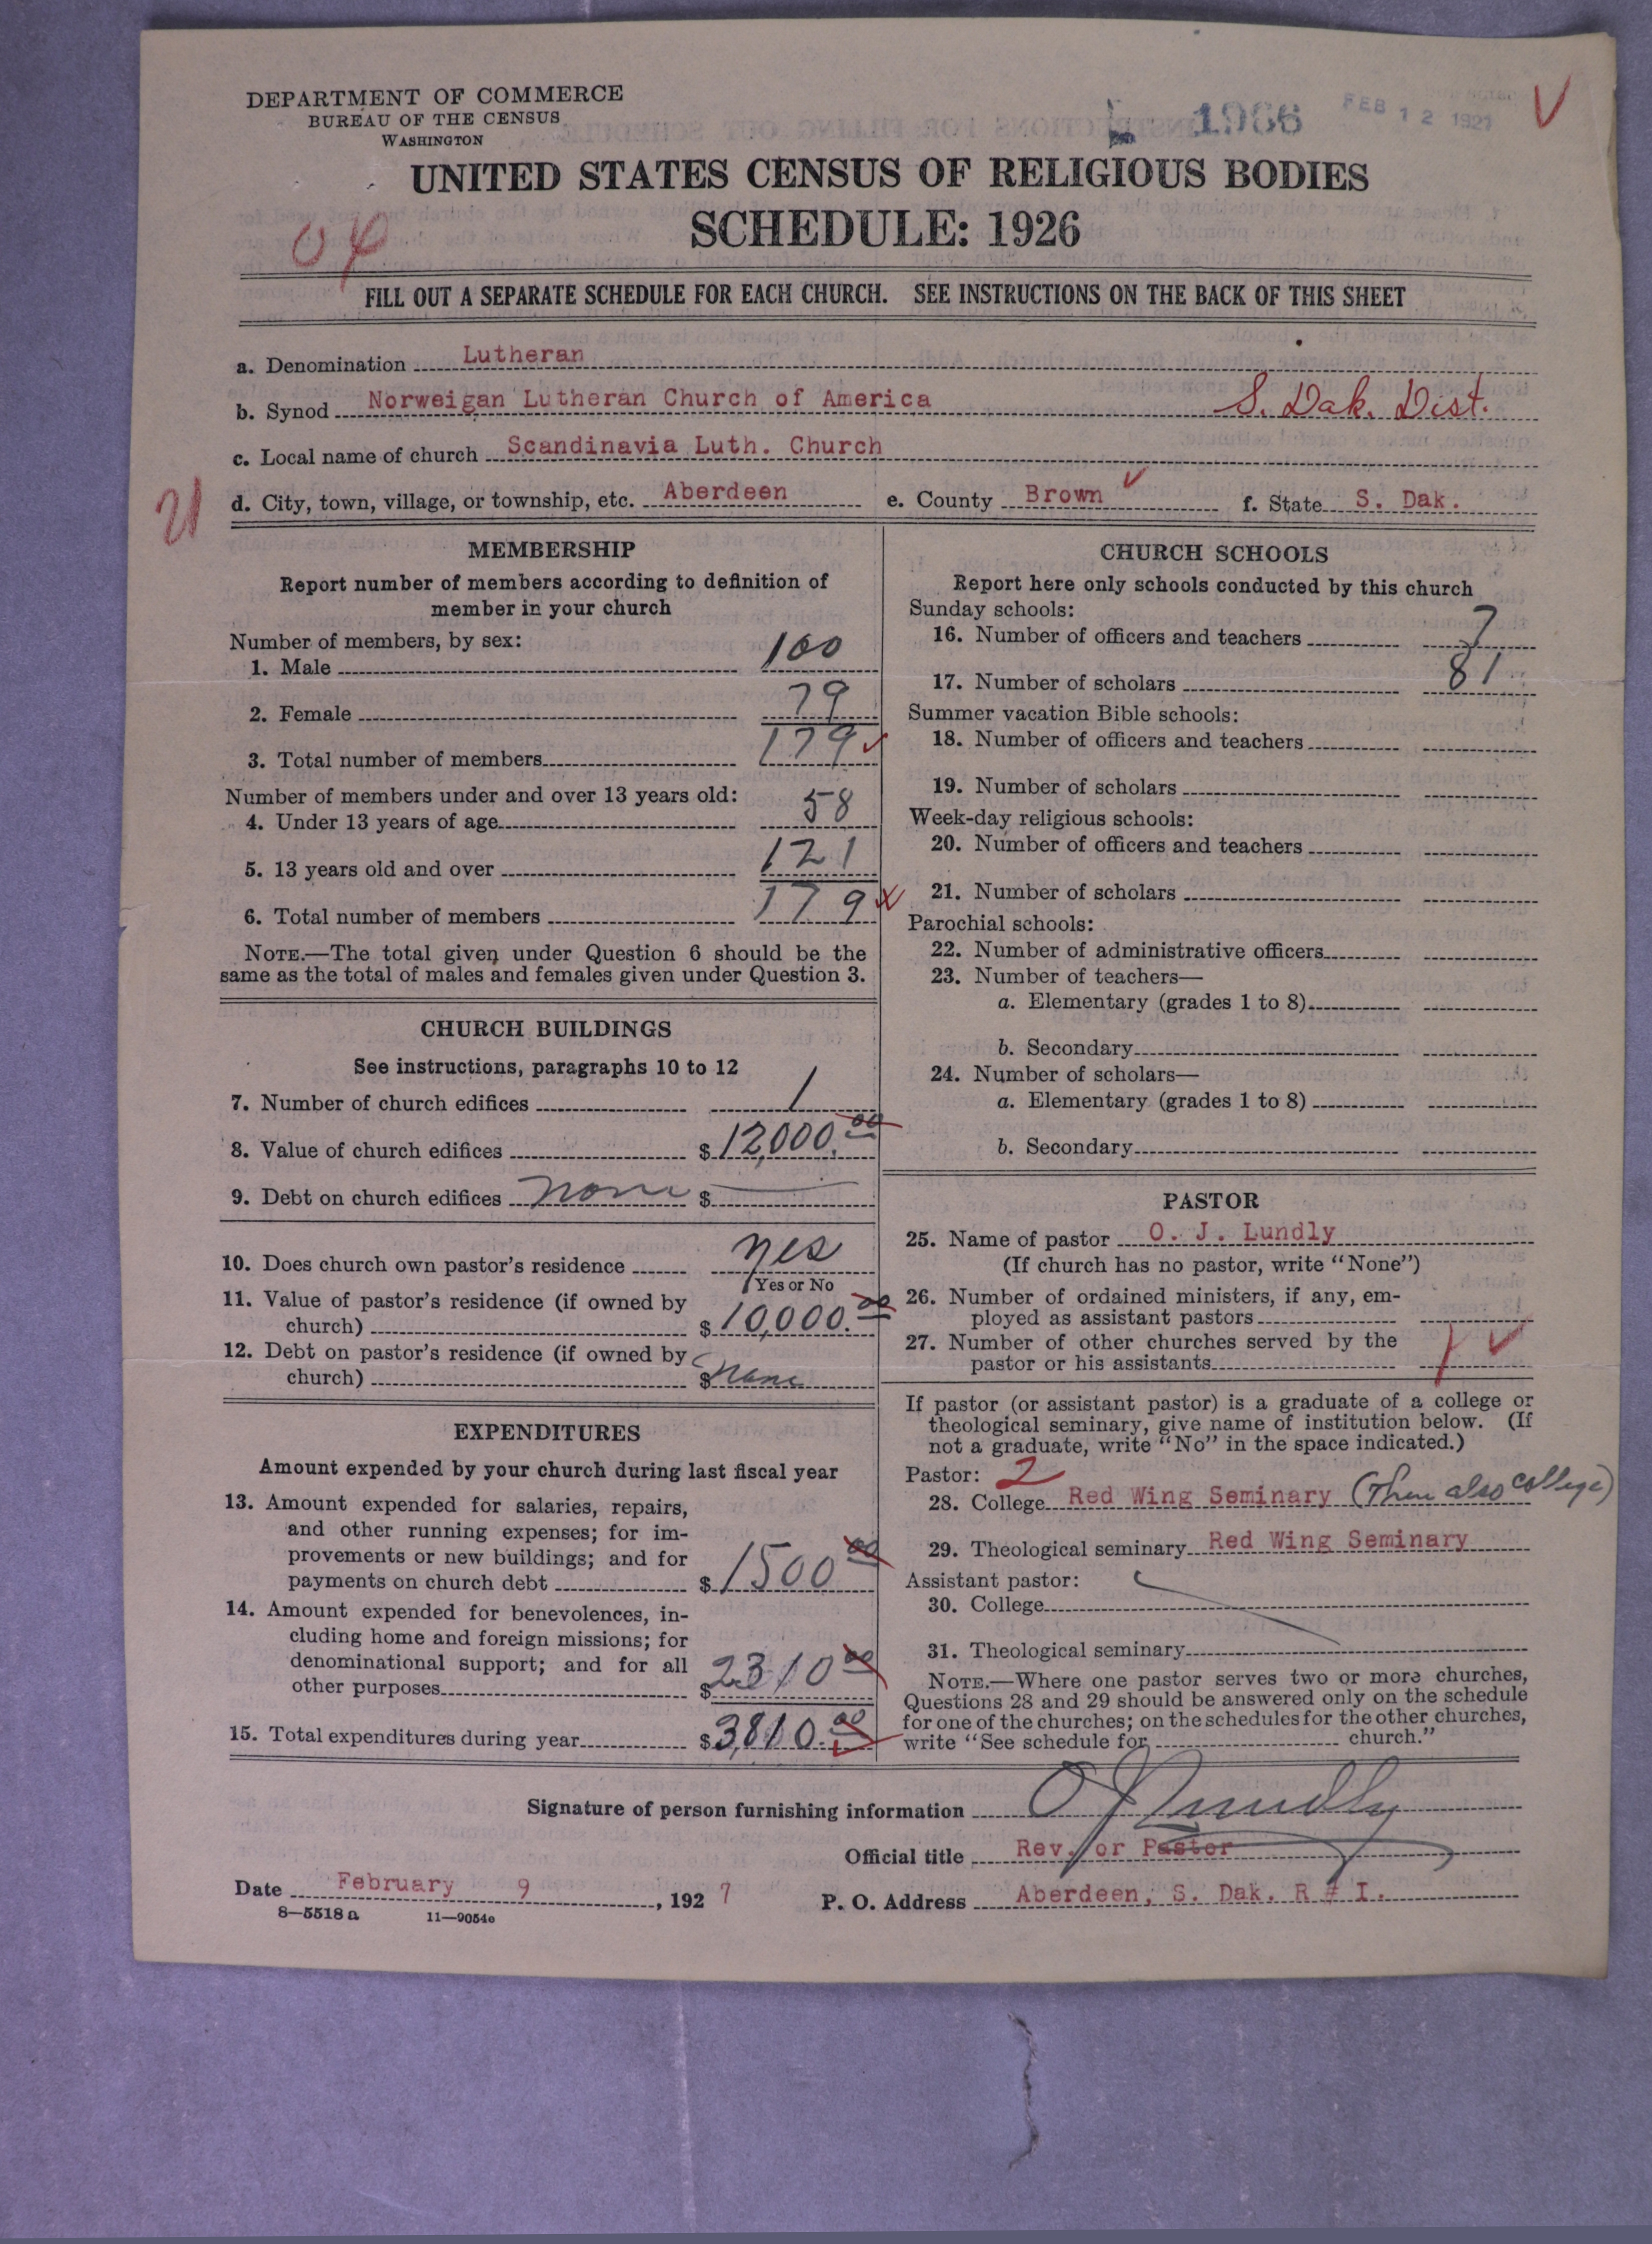 DEPARTMENT OF COMMERCE
BUREAU OF THE CENSUS
WASHINGTON
1966
FEB 12 1927
UNITED STATES CENSUS OF RELIGIOUS BODIES
SCHEDULE: 1926
04
FILL OUT A SEPARATE SCHEDULE FOR EACH CHURCH. SEE INSTRUCTIONS ON THE BACK OF THIS SHEET
a. Denomination Lutheran
b. Synod Norweigan Lutheran Church of America S. Dak. Dist.
c. Local name of church Scandinavia Luth. Church
d. City, town, village, or township, etc. Aberdeen e. County Brown f. State S. Dak.
MEMBERSHIP
Report number of members according to definition of
member in your church
Number of members, by sex:
1. Male 100
2. Female 79
3. Total number of members 179
Number of members under and over 13 years old:
4. Under 13 years of age 58
5. 13 years old and over 121
6. Total number of members 179
NOTE.—The total given under Question 6 should be the
same as the total of males and females given under Question 3.
CHURCH BUILDINGS
See instructions, paragraphs 10 to 12
7. Number of church edifices 1
8. Value of church edifices $12,000.00
9. Debt on church edifices none $
10. Does church own pastor's residence yes
Yes or No
11. Value of pastor's residence (if owned by
church) $10,000.00
12. Debt on pastor's residence (if owned by
church) $ none
EXPENDITURES
Amount expended by your church during last fiscal year
13. Amount expended for salaries, repairs,
and other running expenses; for im-
provements or new buildings; and for
payments on church debt $1500 00
14. Amount expended for benevolences, in-
cluding home and foreign missions; for
denominational support; and for all
other purposes $2310 00
15. Total expenditures during year $3,810.00
CHURCH SCHOOLS
Report here only schools conducted by this church
Sunday schools:
16. Number of officers and teachers 7
17. Number of scholars 81
Summer vacation Bible schools:
18. Number of officers and teachers
19. Number of scholars
Week-day religious schools:
20. Number of officers and teachers
21. Number of scholars
Parochial schools:
22. Number of administrative officers
23. Number of teachers—
a. Elementary (grades 1 to 8)
b. Secondary
24. Number of scholars—
a. Elementary (grades 1 to 8)
b. Secondary
PASTOR
25. Name of pastor O. J. Lundly
(If church has no pastor, write "None")
26. Number of ordained ministers, if any, em-
ployed as assistant pastors
27. Number of other churches served by the
pastor or his assistants 1
If pastor (or assistant pastor) is a graduate of a college or
theological seminary, give name of institution below. (If
not a graduate, write "No" in the space indicated.)
Pastor: 2
28. College Red Wing Seminary (Then also college)
29. Theological seminary Red Wing Seminary
Assistant pastor:
30. College
31. Theological seminary
NOTE.—Where one pastor serves two or more churches,
Questions 28 and 29 should be answered only on the schedule
for one of the churches; on the schedules for the other churches,
write "See schedule for church."
Signature of person furnishing information O J Lundly
Official title Rev. or Pastor
Date February 9, 1927 P. O. Address Aberdeen, S. Dak. R # I.
8—5518 a 11—9054c